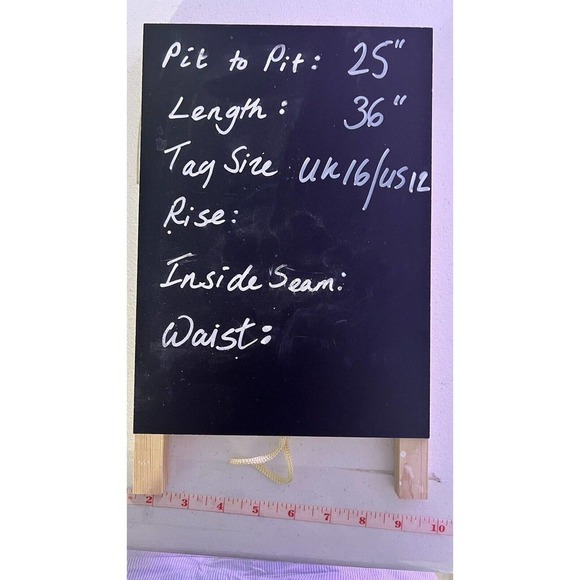 Pit to Pit: 25"
Length: 36"
Tag Size UK16/US12
Rise:
Inside Seam:
Waist:
2 3 4 5 6 7 8 9 10